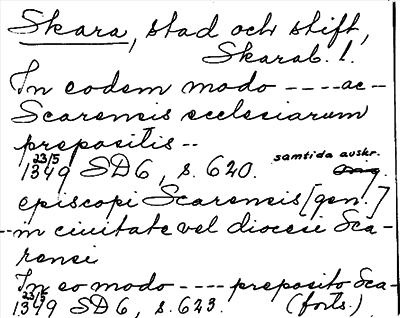 Skara, stad och stift,
Skarab. l.
In eodem modo ---- ac-
Scarensis ecclesiarum
prepositis --
23/5
1349 SD 6, s. 620. samtida avskr.
Orig.
episcopi Scarensis [gen.]
-- in ciuitate vel diocesi Sca-
rensi
In eo modo ---- preposito Sca-
23/5
1349 SD 6, s. 623. (forts.)